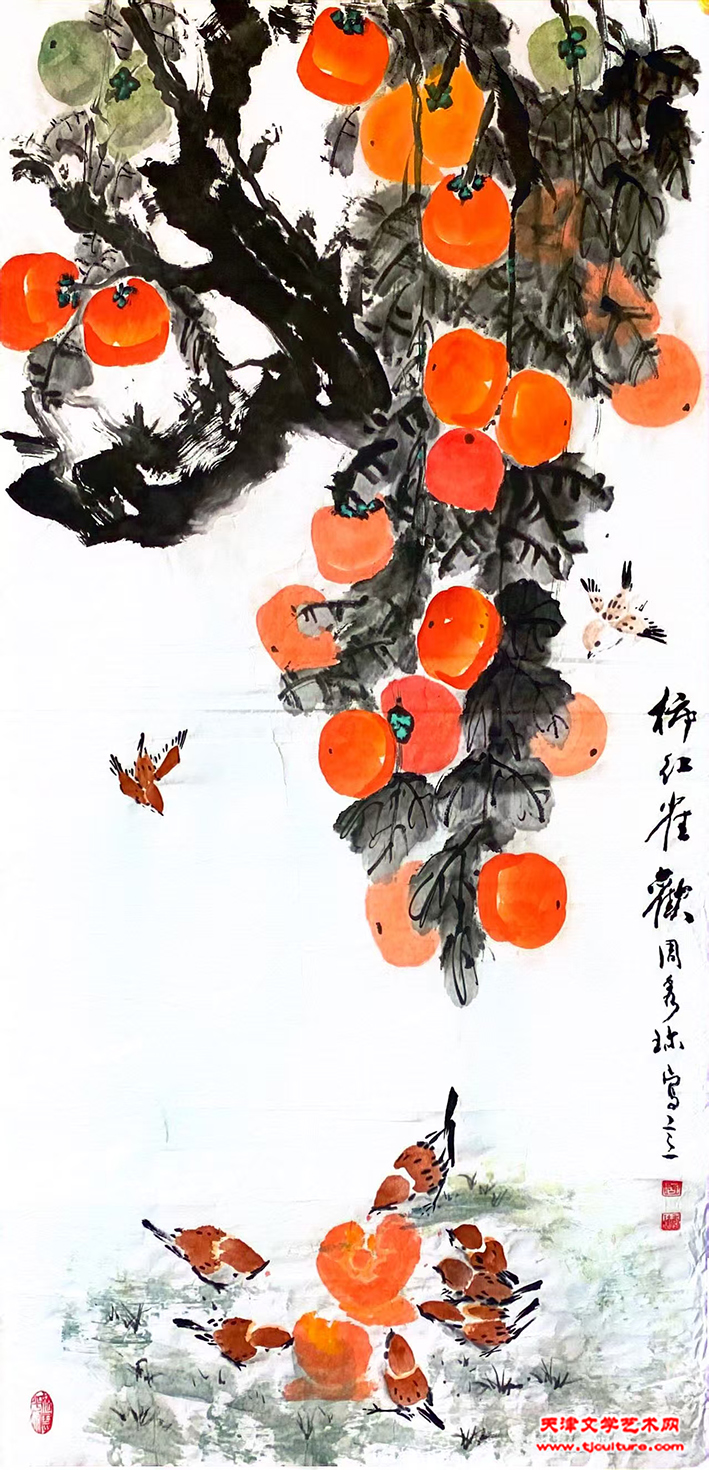 柿红雀歡周秀珍寫
天津文学艺术网
www.tjculture.com